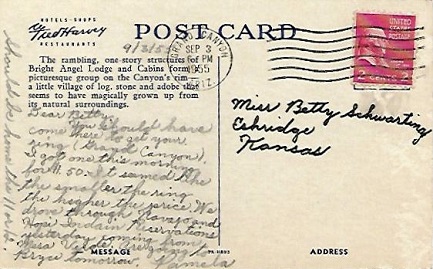 HOTELS · SHOPS
Fred Harvey
RESTAURANTS
POST CARD
9/3/55
The rambling, one-story structures of
Bright Angel Lodge and Cabins form a
picturesque group on the Canyon's rim
a little village of log, stone and adobe that
seems to have magically grown up from
its natural surroundings.
GRAND CANYON
SEP 3
PM
1955
ARIZ.
UNITED STATES
POSTAGE
2 CENTS 2
Dear Betty,
Come You should have
been there to get your
ring (Grand Canyon).
I got one this morning
for $1.50. It seemed like
the smaller the ring
the higher the price. We
drove through Navajo and
Hopi Indain Reservations
yesterday coming from
Mesa Verde. We're going to
Bryce tomorrow. Pamela
Should be home the 11 or 12.
Miss Betty Schwarting
Eskridge
Kansas
MESSAGE
ADDRESS